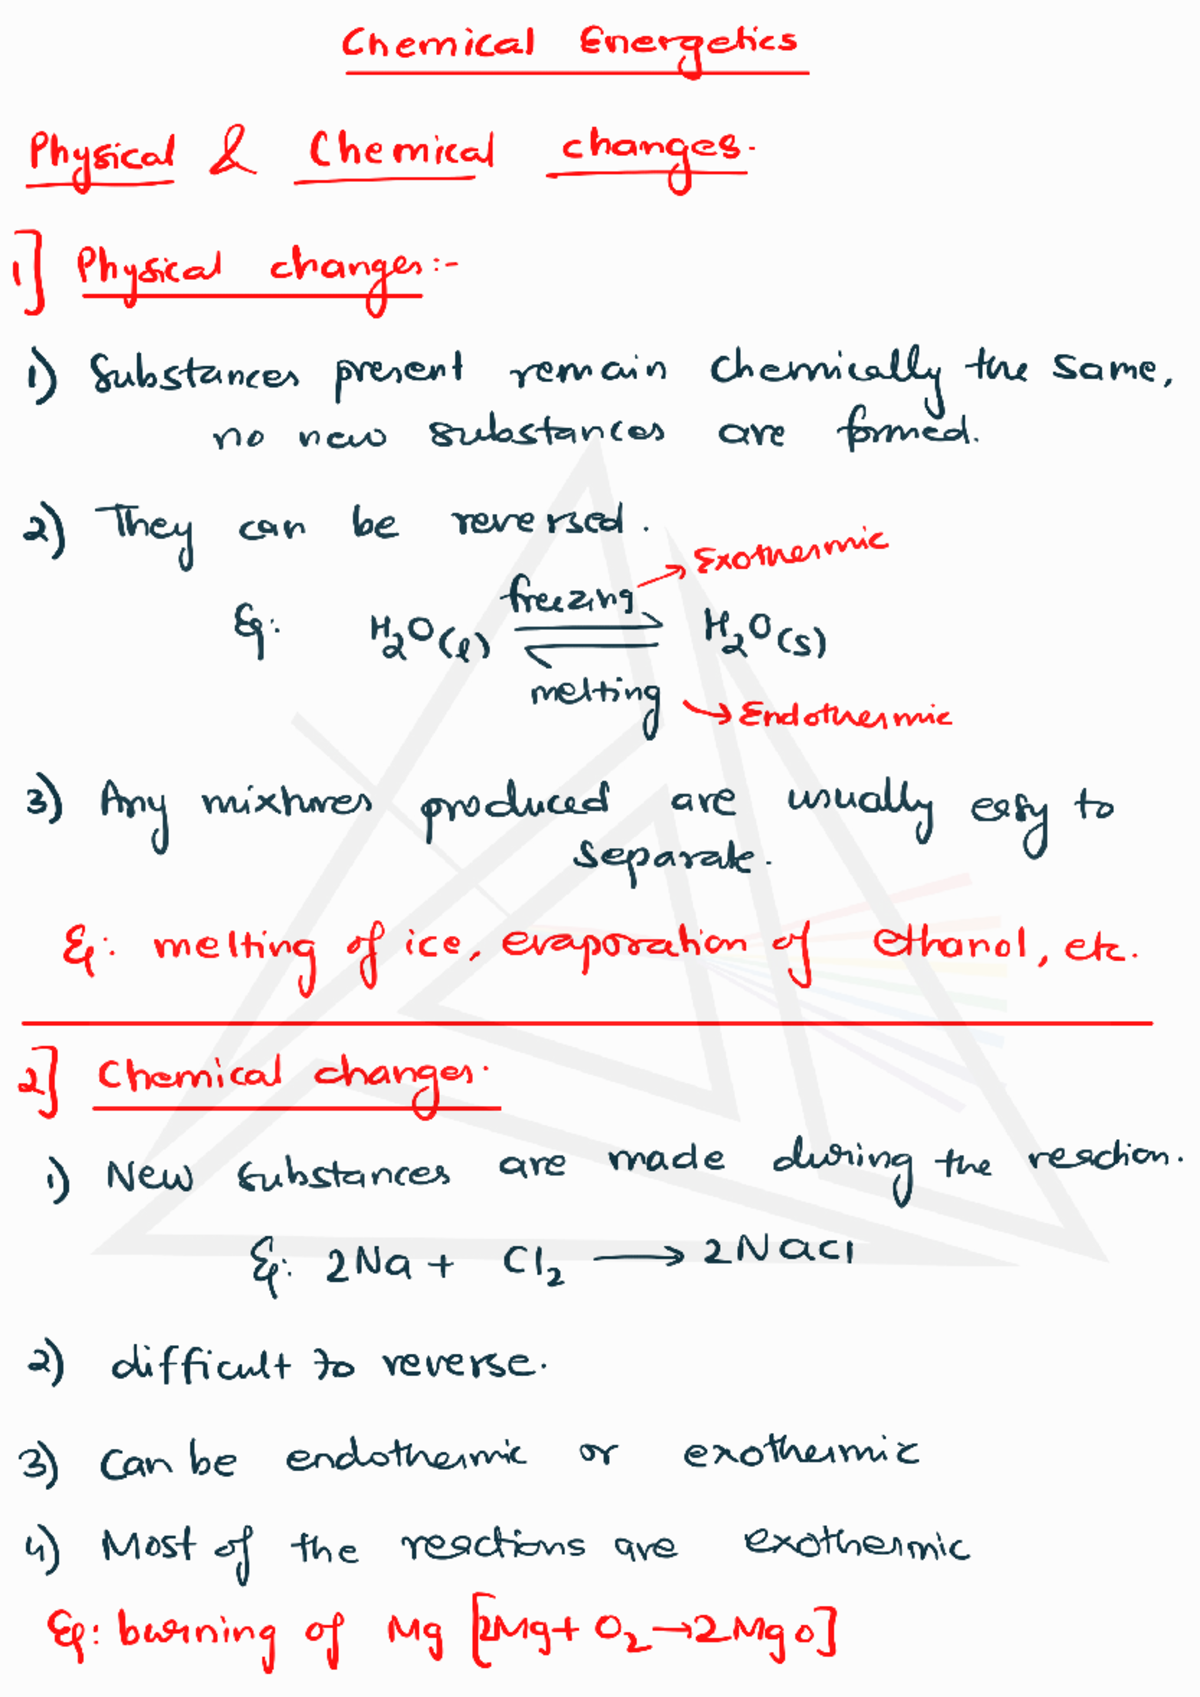 Chemical Energetics
Physical & Chemical changes.
1] Physical changes:-
1) Substances present remain chemically the same,
no new substances are formed.
2) They can be reversed.
Eg: H₂O(l) ⇌ H₂O(s)
freezing → Exothermic
melting → Endothermic
3) Any mixtures produced are usually easy to
separate.
Eg: melting of ice, evaporation of ethanol, etc.
2] Chemical changes.
1) New substances are made during the reaction.
Eg: 2Na + Cl₂ → 2NaCl
2) difficult to reverse.
3) Can be endothermic or exothermic
4) Most of the reactions are exothermic
Eg: burning of Mg [2Mg + O₂ → 2MgO]